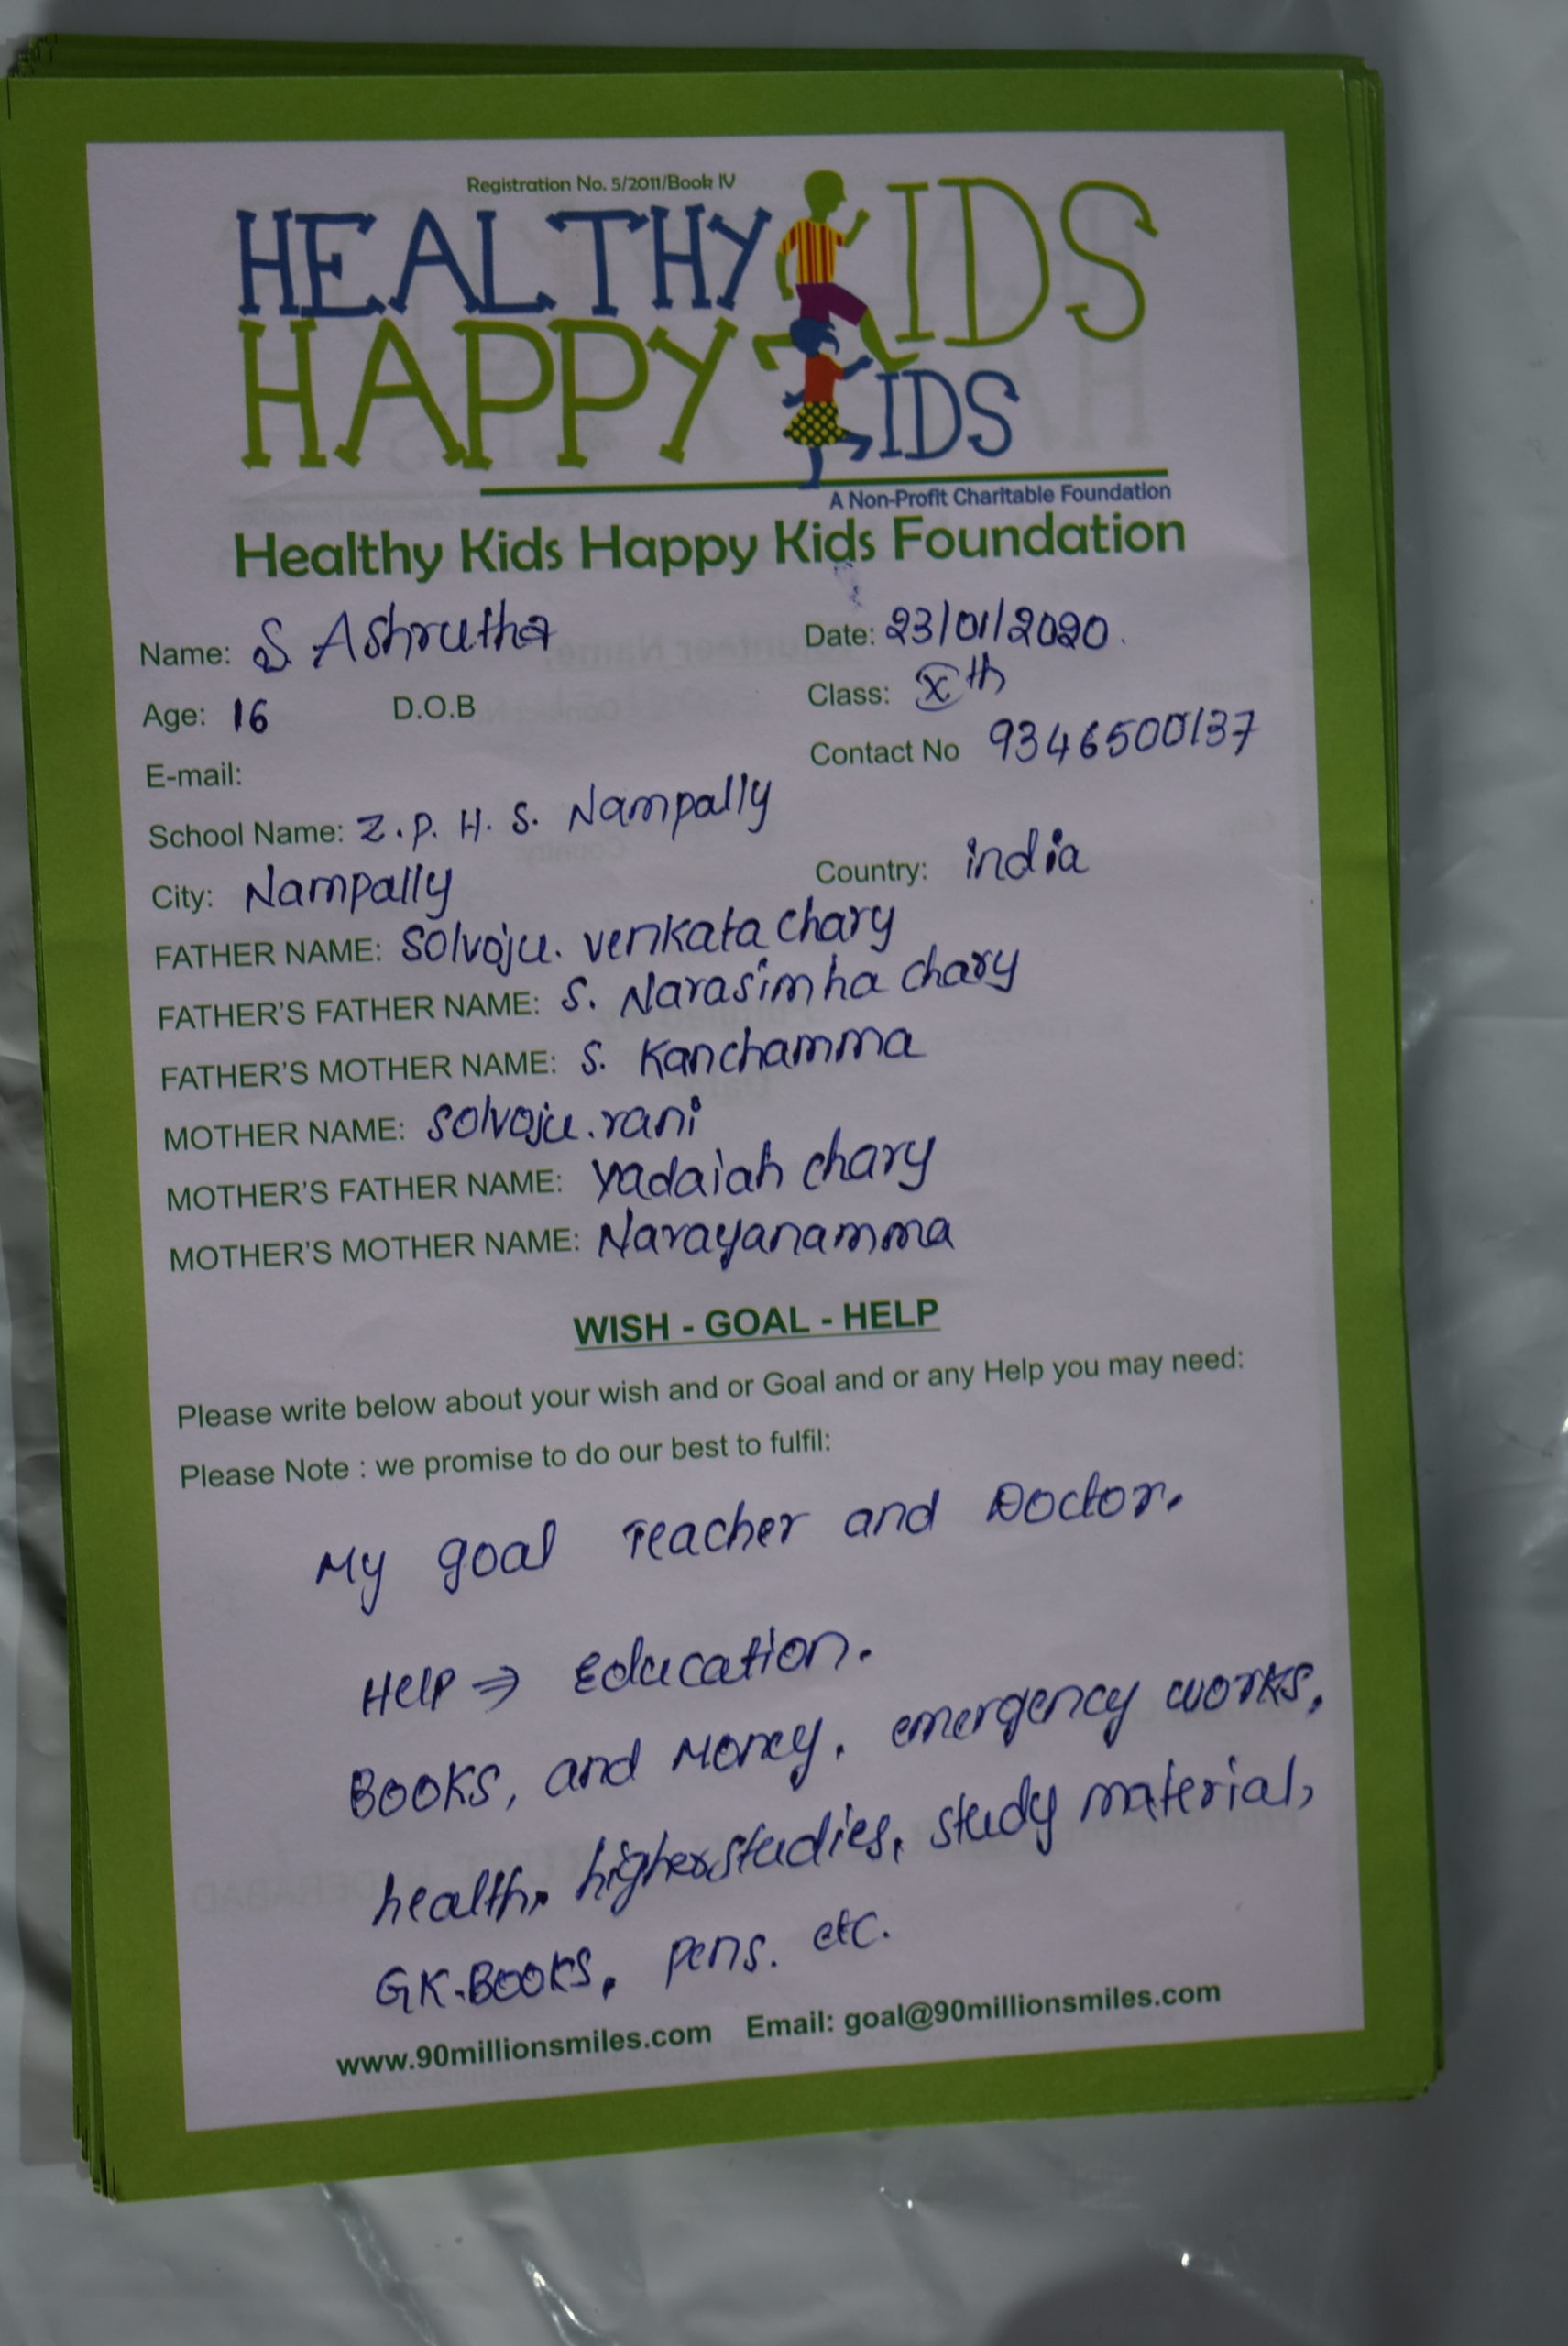 Registration No. 5/2011/Book IV
HEALTHY KIDS
HAPPY KIDS
A Non-Profit Charitable Foundation
Healthy Kids Happy Kids Foundation
Name: S. Ashrutha Date: 23/01/2020.
Age: 16 D.O.B Class: Xth
E-mail: Contact No 9346500137
School Name: Z.P. H. S. Nampally
City: Nampally Country: india
FATHER NAME: Solvoju. venkata chary
FATHER'S FATHER NAME: S. Narasimha chary
FATHER'S MOTHER NAME: S. Kanchamma
MOTHER NAME: Solvoju.rani
MOTHER'S FATHER NAME: Yadaiah chary
MOTHER'S MOTHER NAME: Narayanamma
WISH - GOAL - HELP
Please write below about your wish and or Goal and or any Help you may need:
Please Note : we promise to do our best to fulfil:
My goal Teacher and Doctor.
Help ⇒ Education.
BOOKS, and Money. emergency works,
health, higherstudies, study material,
GK.BOOKS, pens. etc.
www.90millionsmiles.com Email: goal@90millionsmiles.com